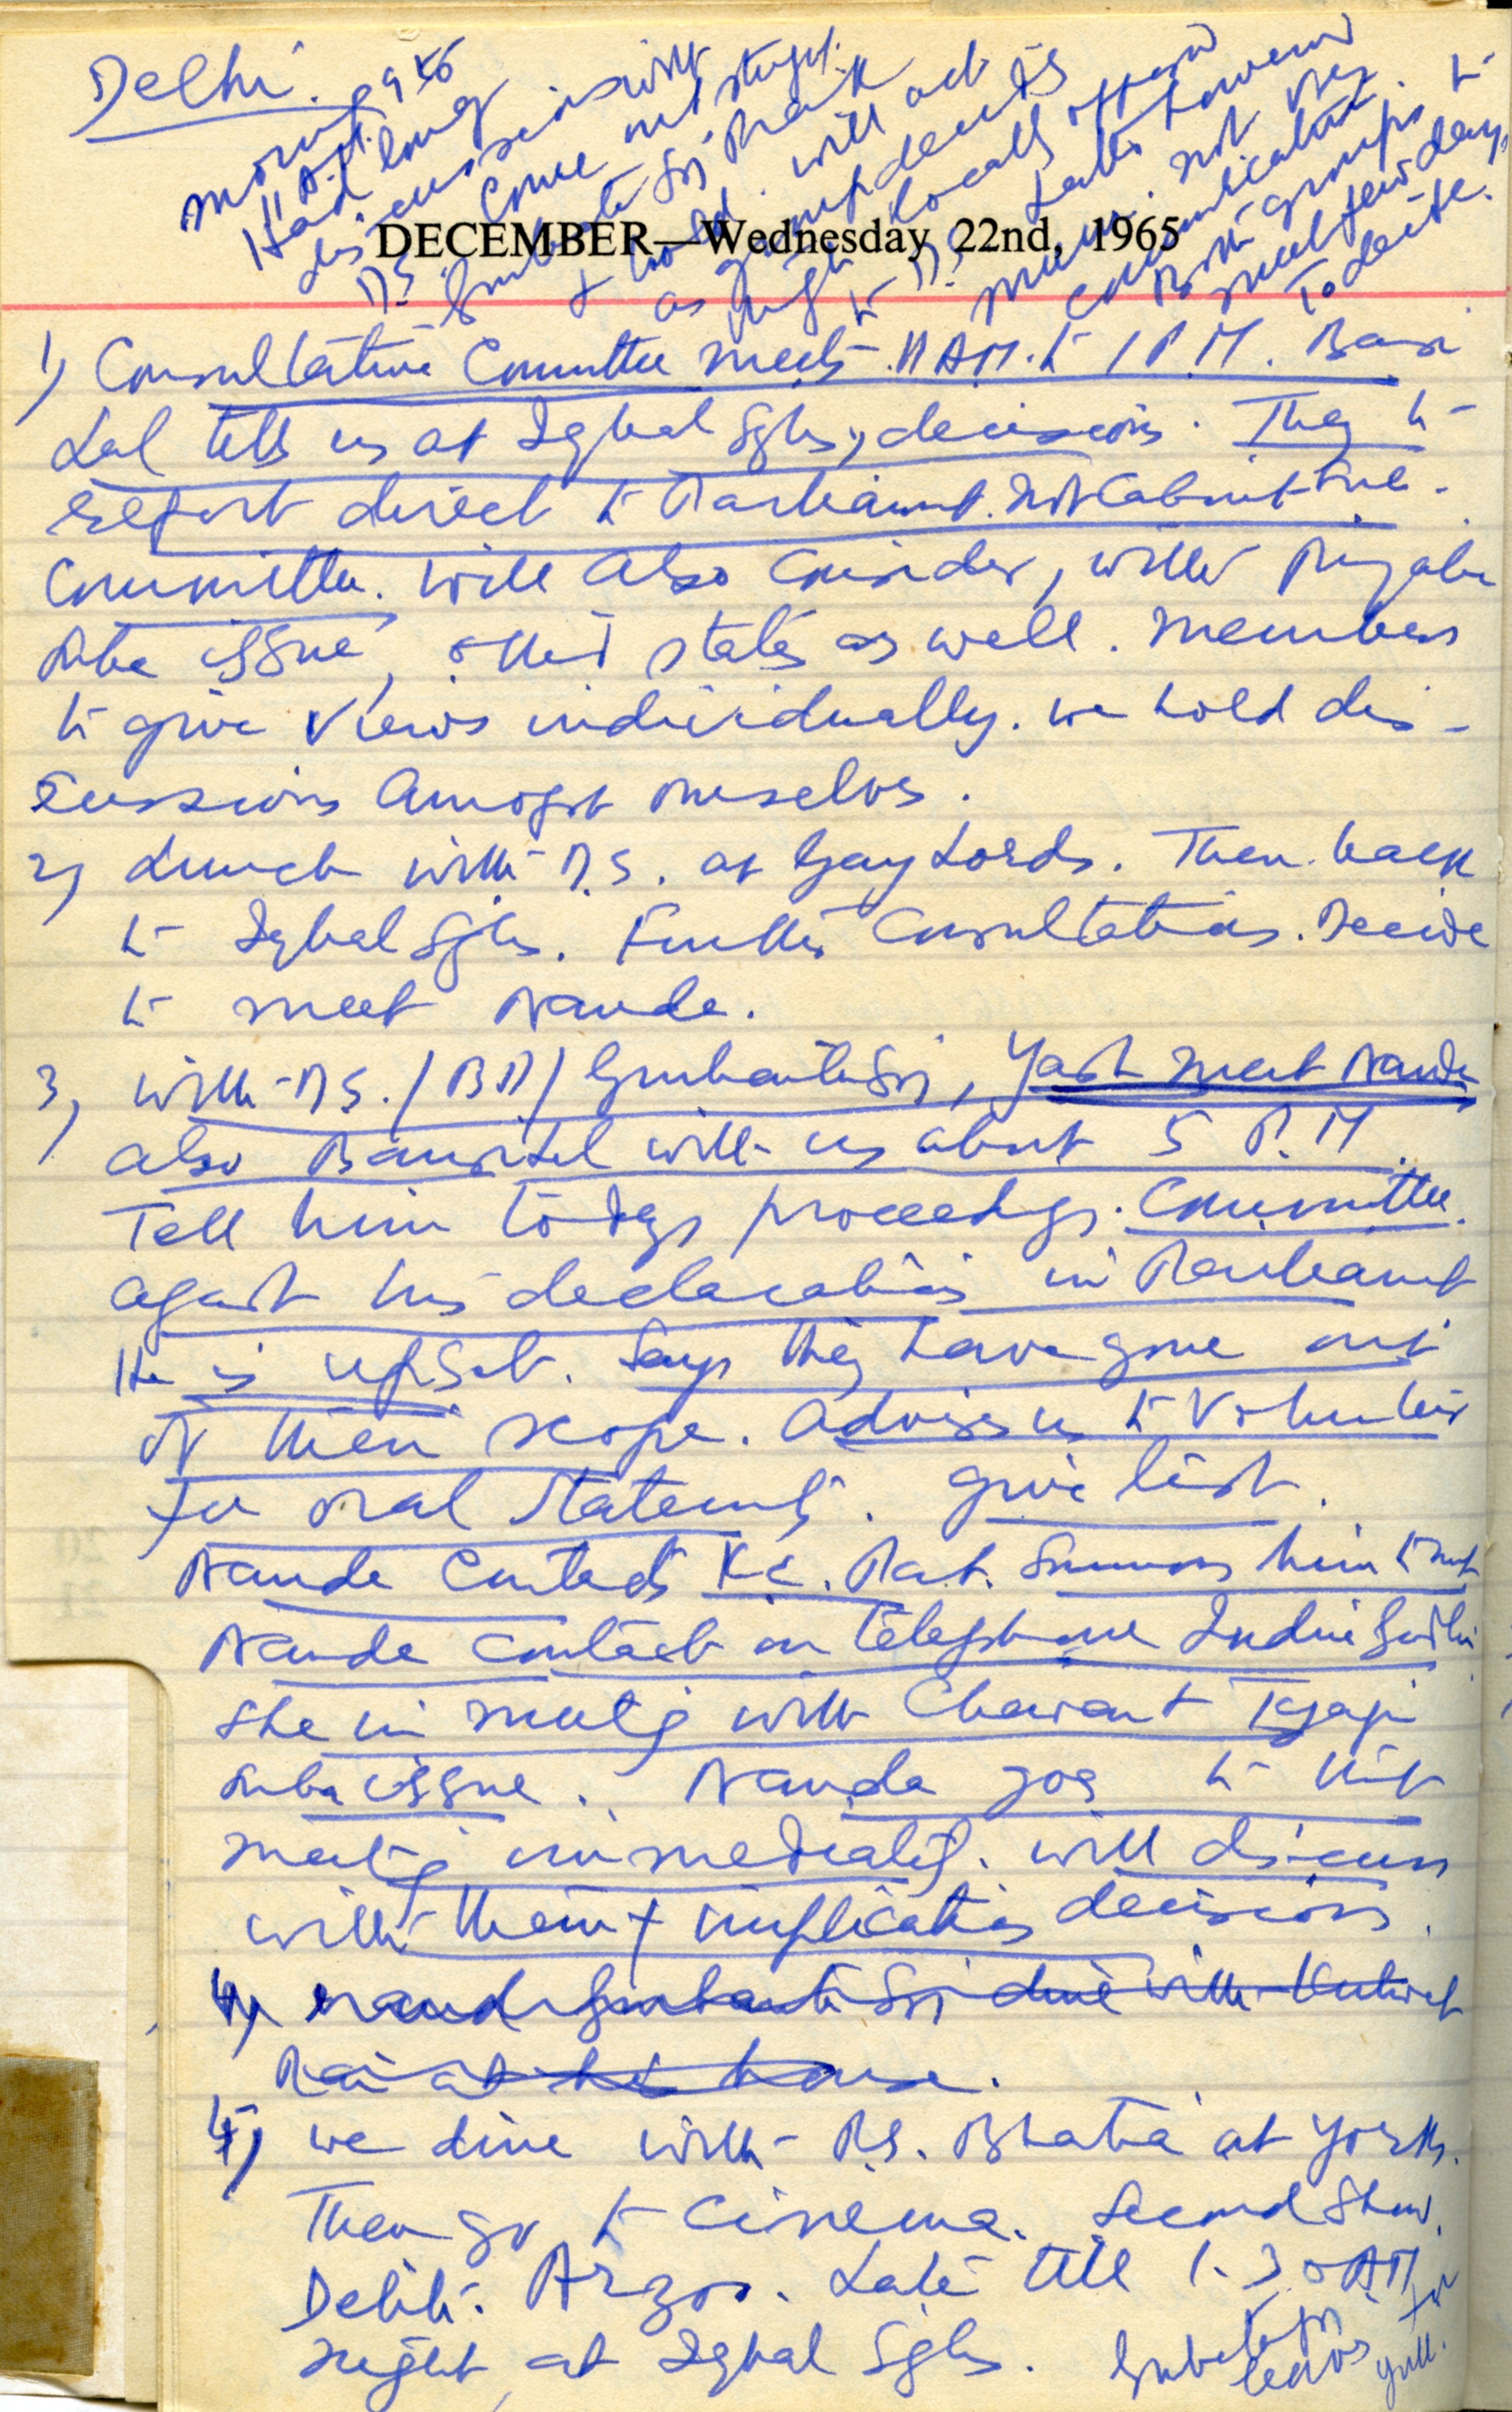 Delhi.
morng 9 to
11 A.M.
Had long
discussions with
D.S. come out
Gurbanta Sgh
& hold. will act
as
high locally
to D.S. Later
mum. not
communicative.
Both groups to
meet few days
To decide.
DECEMBER—Wednesday 22nd, 1965
1) Consultative Committee meets 11 AM. to 1 P.M. Bansi
Lal tells us at Iqbal Sghs, decisions. They to
report direct to Parliament. Not Cabinet Sub.
Committee. will also consider, with Punjabi
Suba issue, other states as well. Members
to give views individually. we hold dis-
cussions Amogst ourselves.
2) Lunch with D.S. at Gay Lords. Then back
to Iqbal Sghs. Further Consultations. Decide
to meet Nanda.
3) with D.S./BD/Gurbanta Sgh, Yash meet Nanda
also Bansi Lal with us about 5 P.M.
Tell him todays proceedgs. Committee
agast his declaration in Parliamt
He is upset. Says they have gone out
of their scope. advises us to Volunteer
for oral statemts. give list.
Nanda Contacts K.C. Pat. Summons him to
Nanda contact on telephone Indira Gandhi
She in meetg with Chavan & Tyagi
Suba issue. Nanda goes to this
meetg immediately. will discuss
with them & implications decisions.
4) and Gurbanta Sgh dine with
Rai at his house.
4) we dine with P.S. Bhatia at Yorks.
Then go to Cinema. Second Show.
Delite. Arzoo. Late till 1.30 AM
Night at Iqbal Sghs.
leaves for
Jull.